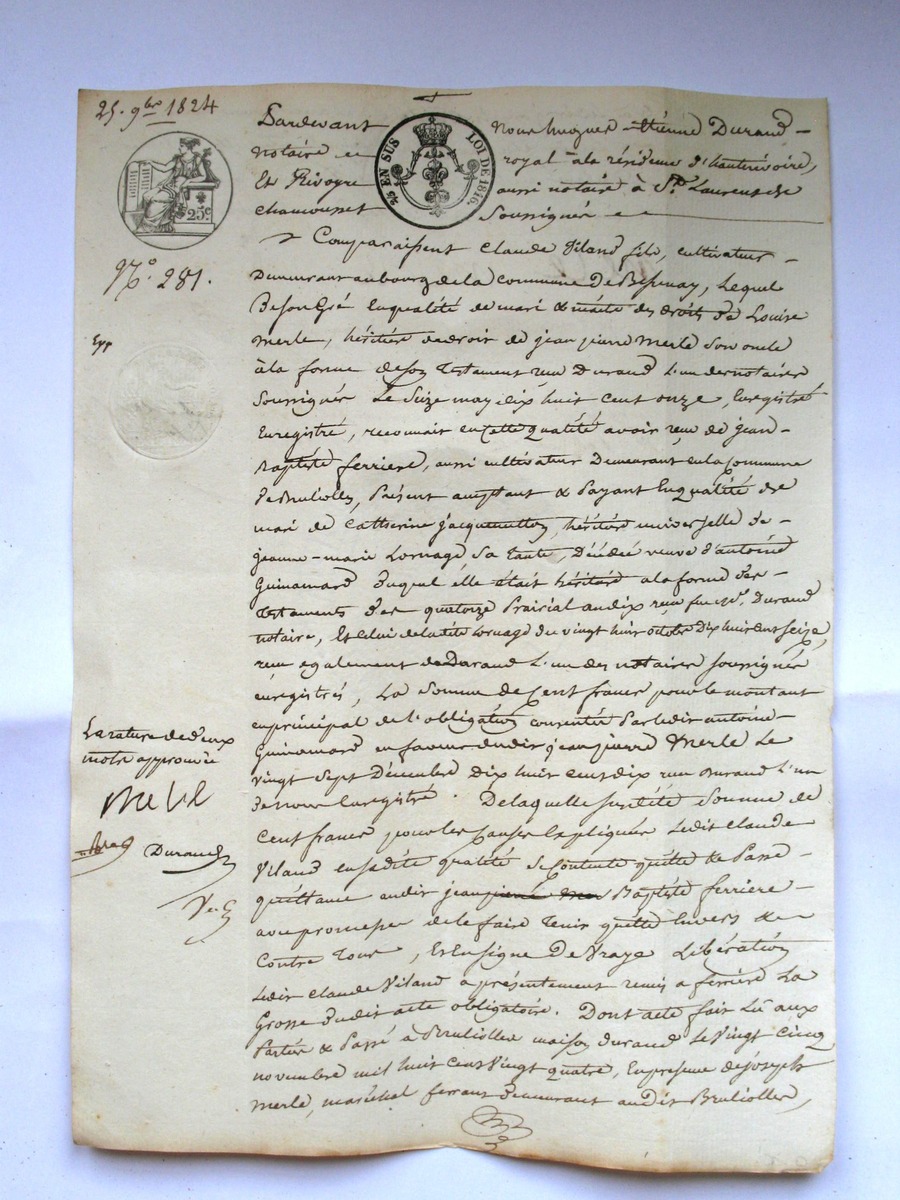 25. 9bre 1824
25c
¼ EN SUS
LOI DE 1816.
N.o 281.
Exp
Pardevant nous hugues étienne Durand
notaire royal à la résidence d'hauterivoire,
Et Rivoyre aussi notaire à St. Laurent de
chamousset Soussignés
Comparaissent Claude Viland fils, cultivateur
Demeurant au bourg de la commune De Bessenay, Lequel
De son Gré En qualité de mari & maitre des droits de Louise
merle, héritière de droit de jean pierre Merle son oncle
à la forme de son Testament reçu Durand L'un des notaires
Soussignés Le Seize may dix huit cent onze, Enregistré
Enregistré, reconnait en Cette qualité avoir reçu de jean
Baptiste ferriere, aussi cultivateur Demeurant en la Commune
De Brullolles, Présent acceptant & Payant En qualité de
mari de Catherine jacquemetton, héritière universelle de
jeanne-marie Lornage Sa tante Décédée veuve d'antoine
Guinamard duquel elle était héritière a la forme des
Testaments des quatorze Prairial an dix reçu feu Me. Durand
notaire, Et Celui de ladite Lornage du vingt huit octobre Dix huit cent Seize,
reçu également de Durand L'un des notaires soussignés
enregistrés, La Somme de Cent francs pour le montant
en principal de l'obligation consentie Par ledit antoine
Guinamard en faveur dudit jean pierre Merle Le
vingt Sept Décembre Dix huit cent dix reçu Durand L'un
de nous Enregistré. De laquelle susdite Somme de
Cent francs pour les Causes Expliquées Ledit Claude
Viland en sadite qualité Se Contente quitte & Passe
quittance audit jean Baptiste ferriere
avec promesse de le faire Tenir quitte Envers &
Contre Tous, Et En Signe De Vraye Libération
Ledit Claude Viland a présentement remis a ferriere La
Grosse dudit acte obligatoire. Dont acte fait Lû aux
Parties & Passé à Brullolles maison Durand Le Vingt Cinq
novembre mil huit cent Vingt quatre, En présence de joseph
Merle, maréchal ferrant demeurant audit Brullolles,
La rature de deux
mots approuvée
Merle
Durand